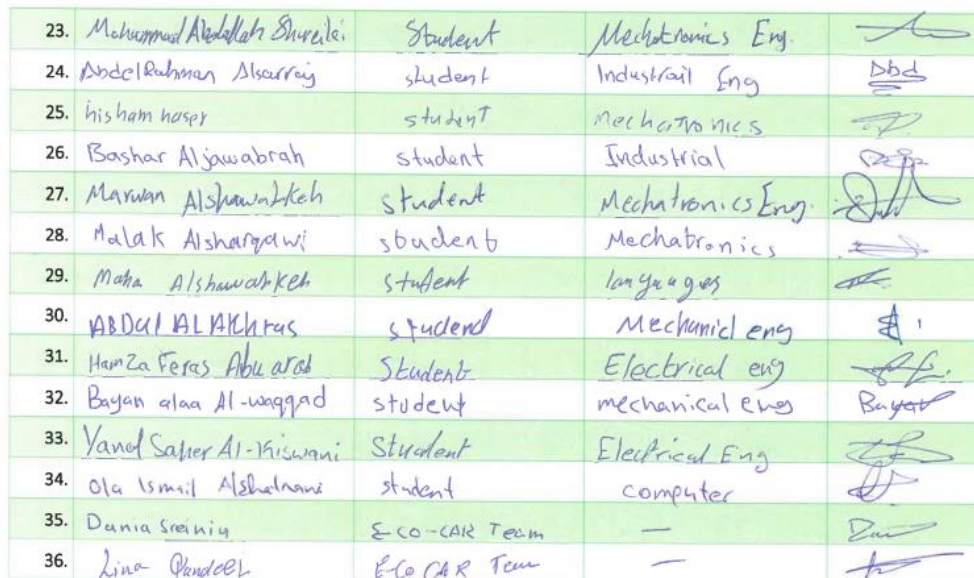 23. Mohammad Abdallah Shreilei Student Mechatronics Eng.
24. AbdelRahman Alsarraj student Industrail Eng Dbd
25. hisham naser student Mechatronics
26. Bashar Aljawabrah student Industrial
27. Marwan Alshawabkeh student Mechatronics Eng.
28. Malak Alsharqawi student Mechatronics
29. Maha Alshawabkeh student languages
30. ABDUl ALAKhras student Mechanicl eng
31. Hamza Feras Abu arab Student Electrical eng
32. Bayan alaa Al-waqqad student mechanical eng Bayan
33. Yanal Saher Al-Kiswani Student Electrical Eng
34. Ola Ismail student computer
35. Dania sreiniu E-CO-CAR Team —
36. Lina Qandeel E-Co CAR Team —